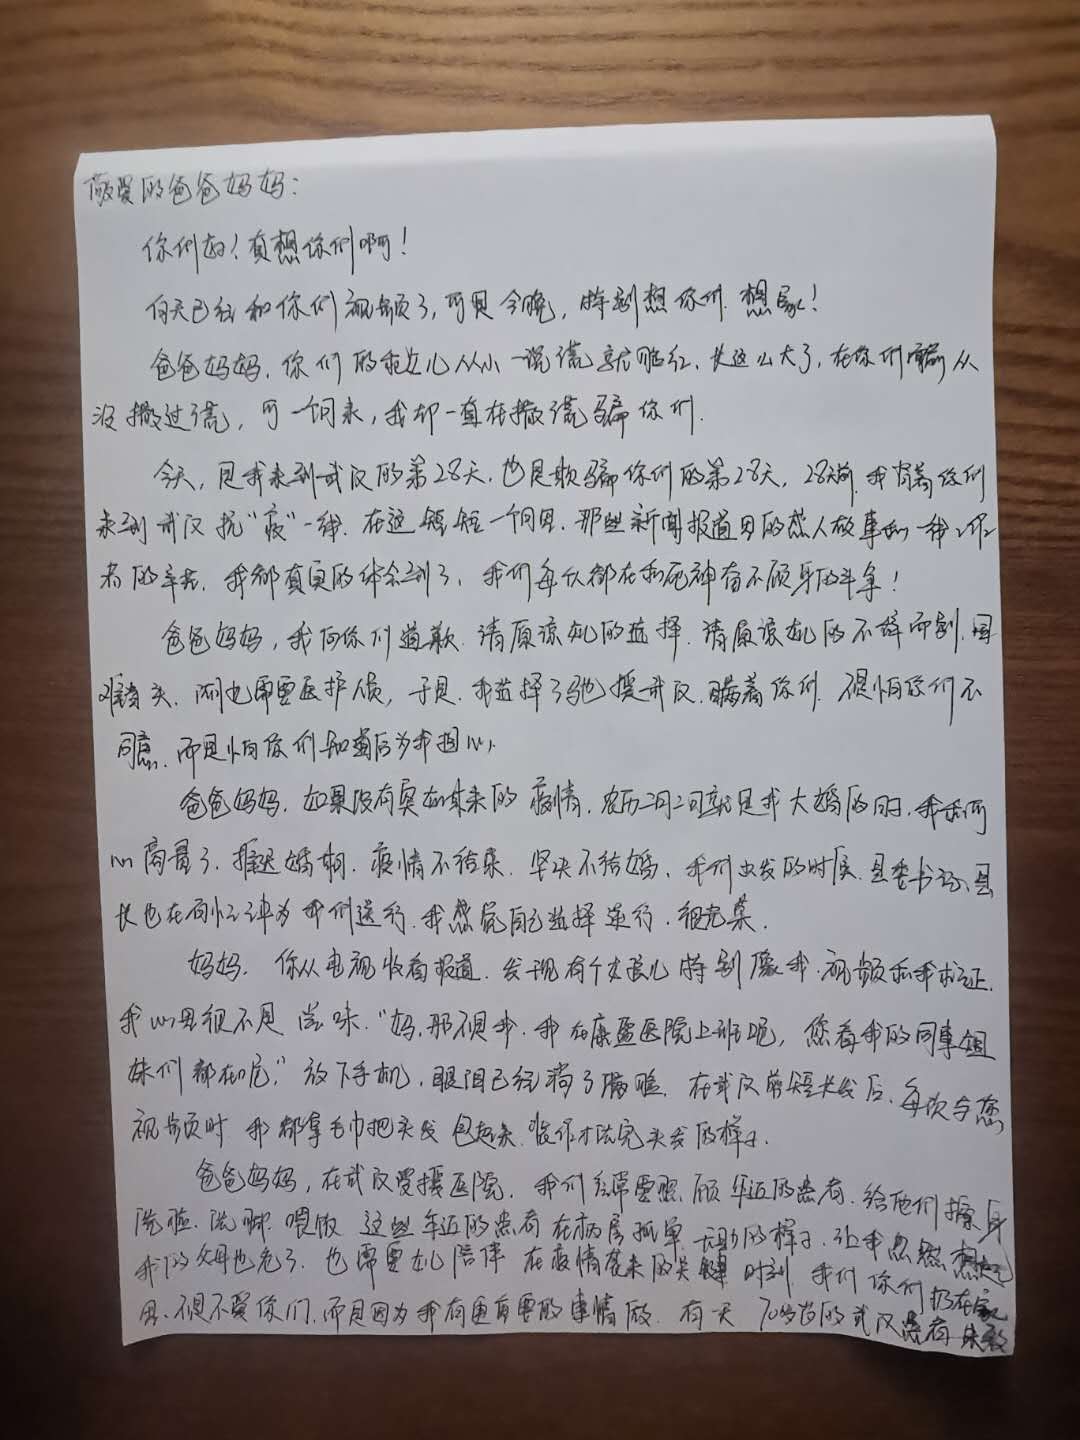 敬爱的爸爸妈妈：
你们好！真想你们啊！
白天已经和你们视频了，可是今晚，特别想你们.想家！
爸爸妈妈.你们的女儿从小一说谎就脸红.长这么大了，在你们面前从
没撒过谎，可一个月来，我却一直在撒谎骗你们.
今天，是我来到武汉的第28天.也是欺骗你们的第28天，28天前.我背着你们
来到武汉抗“疫”一线.在这短短一个月里.那些新闻报道里的感人故事和一线工作
者的辛苦.我都真真的体会到了，我们每一次都在和死神奋不顾身的斗争！
爸爸妈妈，我向你们道歉.请原谅女儿的选择.请原谅女儿的不辞而别.国
难当头.更需要医护人员，于是.我选择了驰援武汉.瞒着你们.不是怕你们不
同意.而是怕你们知道后为我担心.
爸爸妈妈.如果没有突如其来的疫情.农历二月二可就是我大婚的日子.我和阿
商量了.推迟婚期.疫情不结束.坚决不结婚.我们出发的时候.县委书记、县
长也在百忙之中为我们送行.我感觉自己选择逆行.很光荣.
妈妈.你从电视收看报道.发现有个女孩儿特别像我.视频和我求证.
我心里很不是滋味.“妈.那不是我.我在康盈医院上班呢，您看我的同事姐
妹们都在呢.”放下手机.眼泪已经淌了满脸.在武汉剪短头发后.每次与您
视频时.我都拿毛巾把头发包起来.装作才洗完头发的样子.
爸爸妈妈，在武汉受援医院.我们经常要照顾年迈的患者.给他们擦身
洗脸.洗脚.喂饭.这些年迈的患者在病房孤单无助的样子.让我忽然想起
我的父母也老了.也需要女儿陪伴.在疫情袭来的关键时刻.我们你们扔在家
里.不是不爱你们.而是因为我有更重要的事情做.有一天70多岁的武汉患者